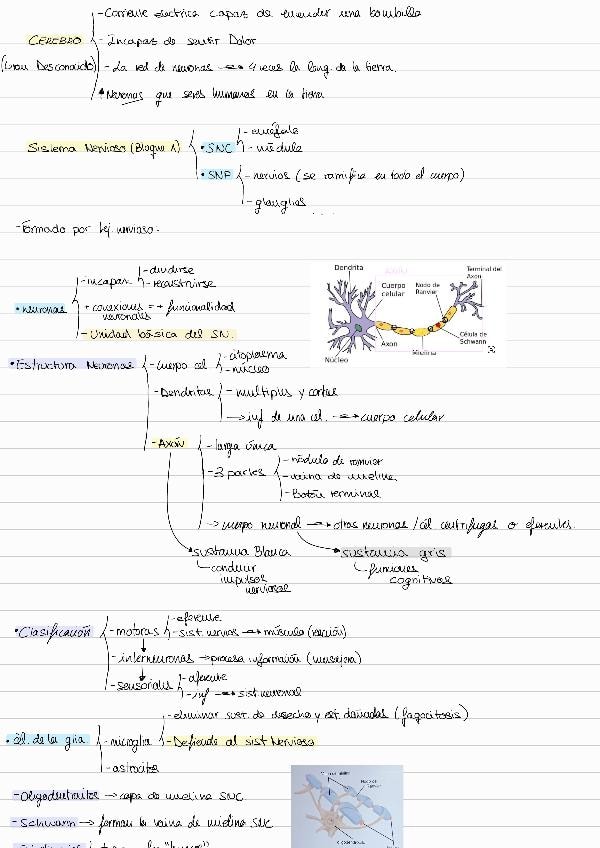 - Corriente eléctrica capaz de encender una bombilla
CEREBRO
- Incapaz de sentir Dolor
(Gran Desconocido)
- La red de neuronas 4 veces la long. de la tierra.
Neuronas que seres humanos en la tierra
Sistema Nervioso (Bloque 1)
• SNC
- encéfalo
- médula
• SNP
- nervios (se ramifica en todo el cuerpo)
- ganglios
- Formado por tej. nervioso.
• neuronas
- incapaz
- dividirse
- reconstruirse
+ conexiones = + funcionalidad
neuronales
- Unidad básica del SN.
Dendrita
Cuerpo
celular
Nodo de
Ranvier
Terminal del
Axón
Axon
Mielina
Célula de
Schwann
Núcleo
• Estructura Neuronas
- cuerpo cel
- citoplasma
- núcleo
- Dendritas
- multiples y cortas
→ inf de una cel. → cuerpo celular
- Axón
- larga única
- 3 partes
- nódulo de ranvier
- vaina de mielina
- Botón terminal
→ cuerpo neuronal → otras neuronas / cél centrífugas o eferentes.
sustancia Blanca
conducir
impulsos
nerviosos
sustancia gris
funciones
cognitivas
• Clasificación
- motoras
- eferente
- sist. nervios → músculo (reacción)
- interneuronas → procesa información (mensajera)
- sensoriales
- aferente
- inf → sist. neuronal
• cél. de la glia
- microglia
- eliminar sust. de desecho y est. dañadas (fagocitosis)
- Defiende al sist Nervioso
- astrocitos
- Oligodendrocitos → capa de mielina SNC
- Schwann → forman la vaina de mielina SNC
Nodo de
Ranvier